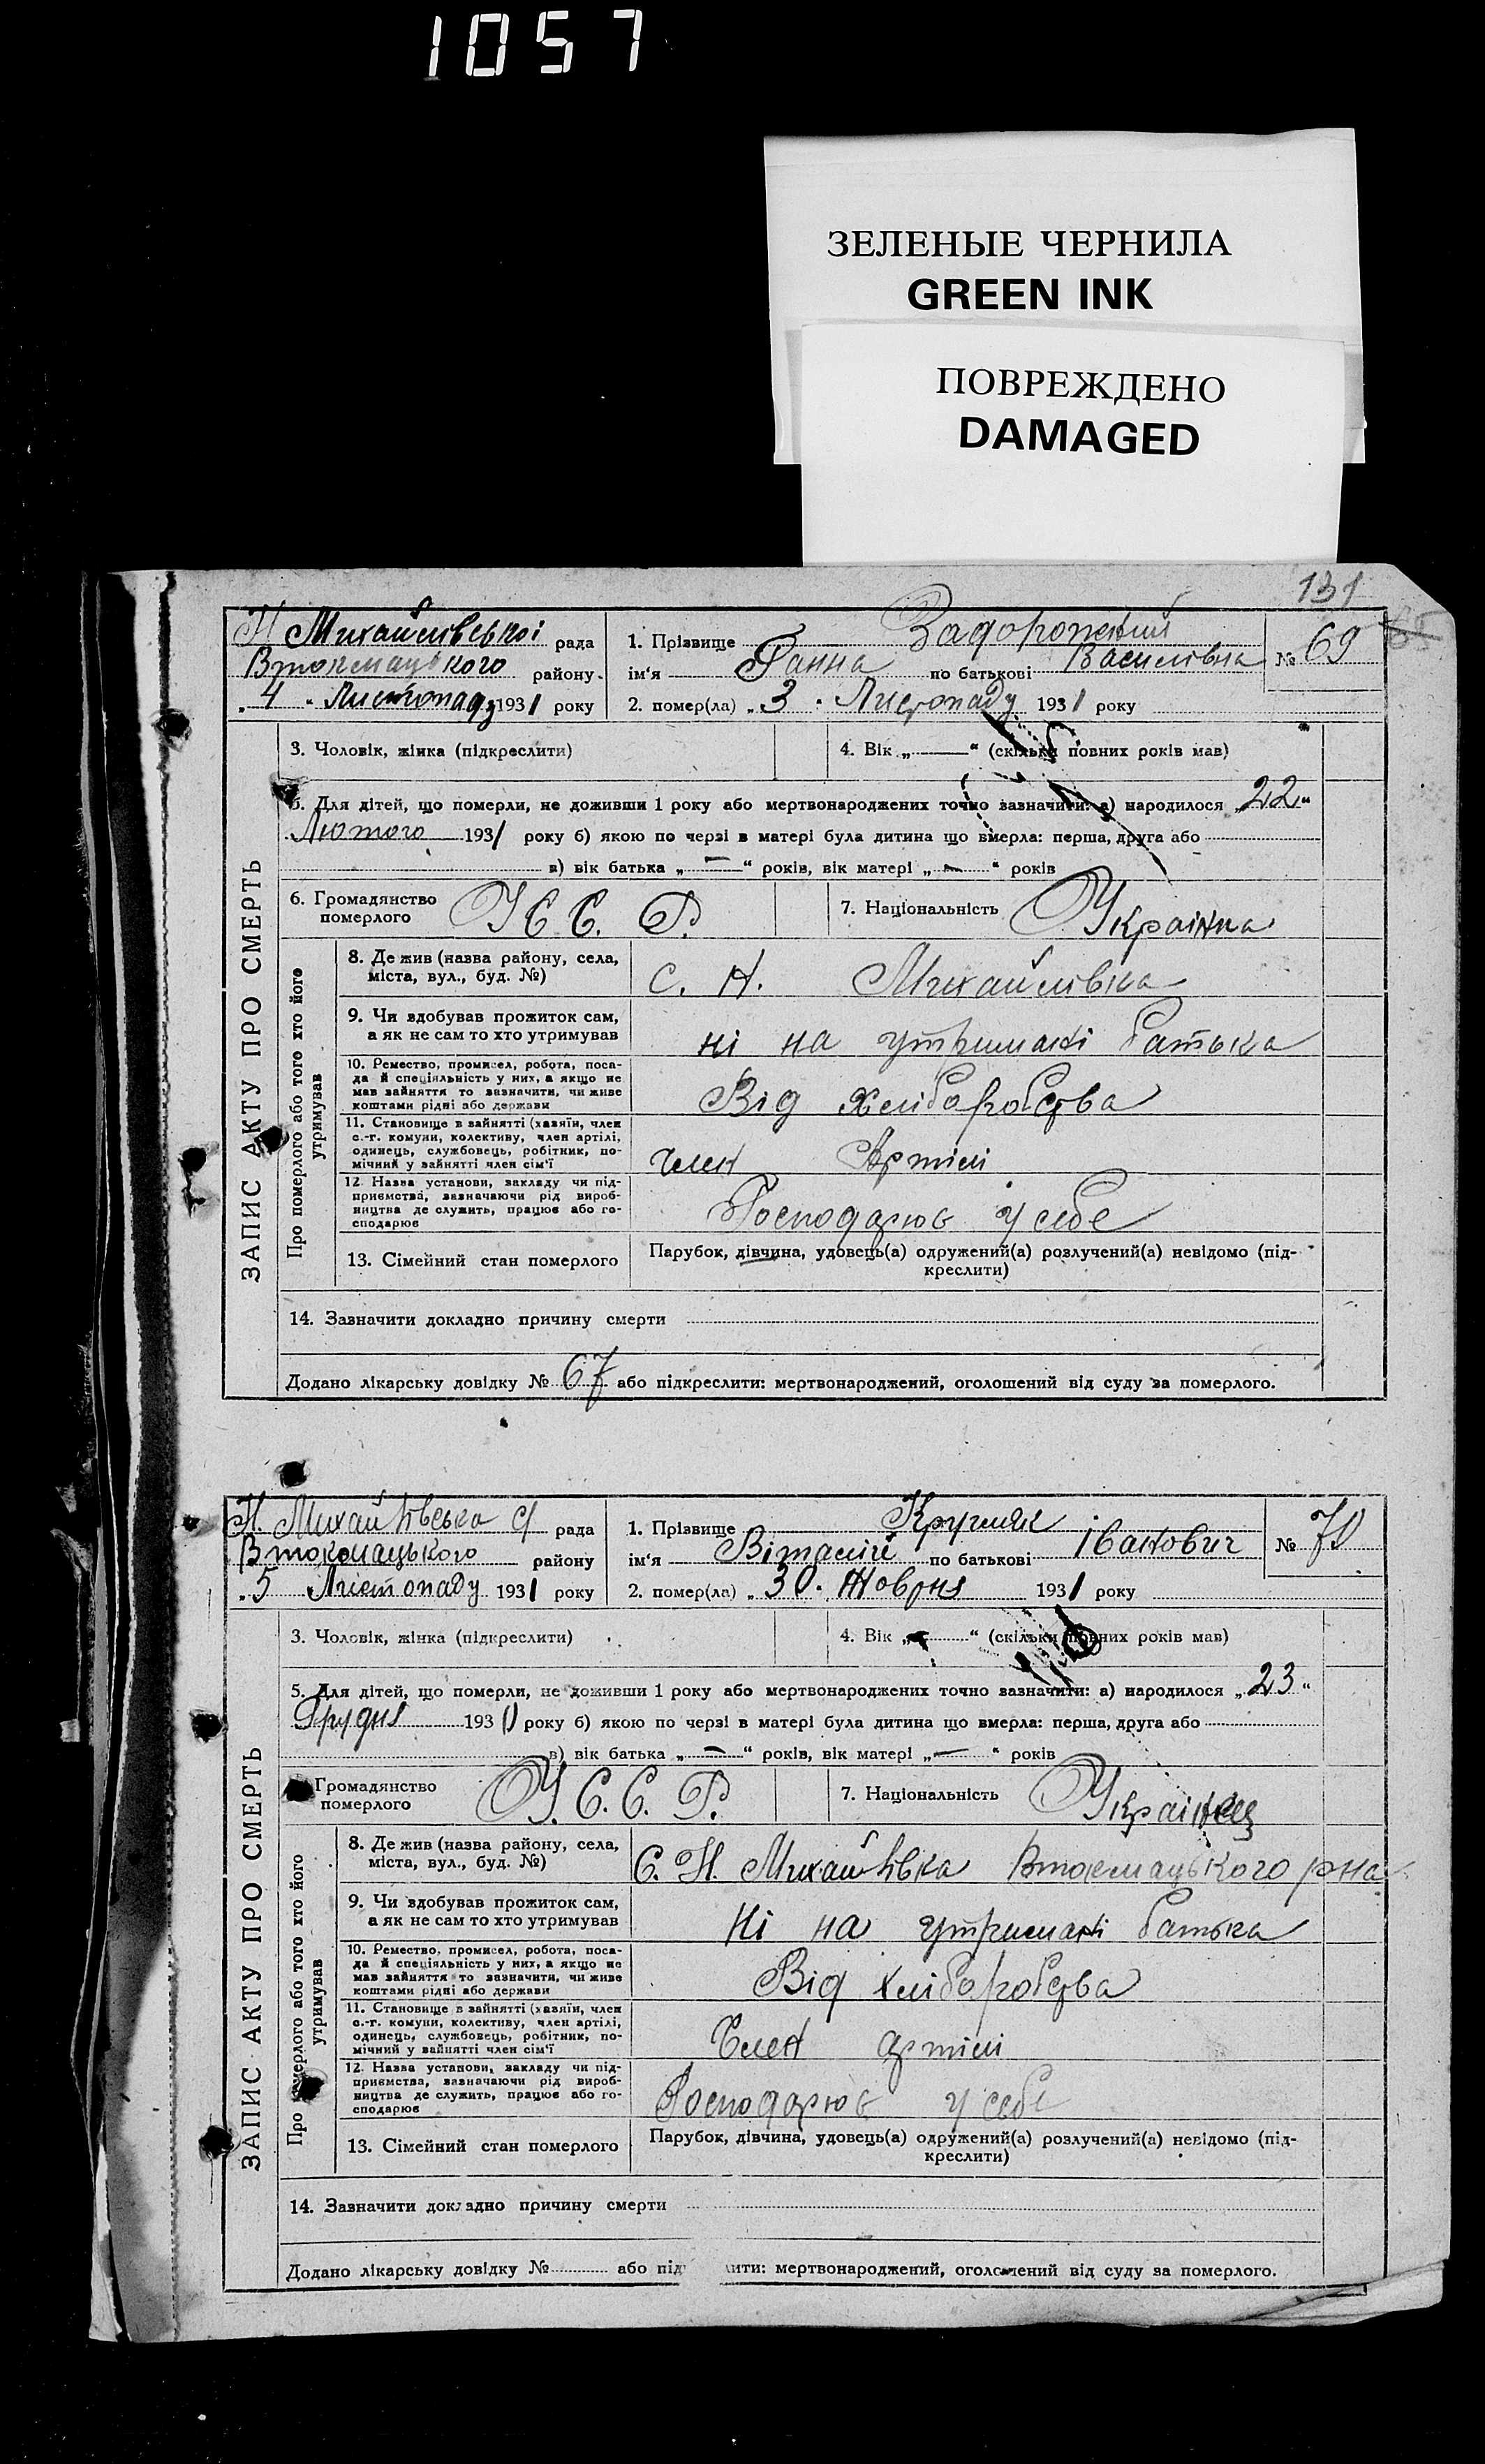 1057
ЗЕЛЕНЫЕ ЧЕРНИЛА
GREEN INK
ПОВРЕЖДЕНО
DAMAGED
131
Н Михайлівської рада
Втокмацького району
„4“ Листопаду 1931 року
1. Прізвище Задорожній
ім‘я Ганна по батькові Василівна
№ 69
2. помер(ла) „3. Листопаду 1931 року
3. Чоловік, жінка (підкреслити)
4. Вік „—“ (скільки повних років мав)
5. Для дітей, що померли, не доживши 1 року або мертвонароджених точно зазначити: а) народилося „22“
Лютого 1931 року б) якою по черзі в матері була дитина що вмерла: перша, друга або
в) вік батька „—“ років, вік матері „—“ років
6. Громадянство померлого
УССР.
7. Національність Українка
ЗАПИС АКТУ ПРО СМЕРТЬ
Про померлого або того хто його утримував
8. Де жив (назва району, села,
міста, вул., буд. №)
с. Н. Михайлівка
9. Чи здобував прожиток сам,
а як не сам то хто утримував
ні на утримані батька
10. Ремество, промисел, робота, поса-
да й спеціяльність у них, а якщо не
мав зайняття то зазначити, чи живе
коштами рідні або держави
Від хліборобства
11. Становище в зайнятті (хазяїн, член
с.-г. комуни, колективу, член артілі,
одинець, службовець, робітник, по-
мічний у зайнятті член сім‘ї
член Артілі
12. Назва установи, закладу чи під-
приємства, зазначаючи рід вироб-
ництва де служить, працює або го-
сподарює
Господарює у себе
13. Сімейний стан померлого
Парубок, дівчина, удовець(а) одружений(а) розлучений(а) невідомо (під-
креслити)
14. Зазначити докладно причину смерти
Додано лікарську довідку № 67 або підкреслити: мертвонароджений, оголошений від суду за померлого.
Н. Михайлівська с/ рада
Втокмацького району
„5 Листопаду 1931 року
1. Прізвище Кругляк
ім‘я Віталій по батькові Іванович
№ 70
2. помер(ла) „30. Жовтня 1931 року
3. Чоловік, жінка (підкреслити)
4. Вік „—“ (скільки повних років мав)
5. Для дітей, що померли, не доживши 1 року або мертвонароджених точно зазначити: а) народилося „23“
Грудня 1930 року б) якою по черзі в матері була дитина що вмерла: перша, друга або
в) вік батька „—“ років, вік матері „—“ років
Громадянство
померлого
У.С.С.Р.
7. Національність Українец
ЗАПИС АКТУ ПРО СМЕРТЬ
Про померлого або того хто його утримував
8. Де жив (назва району, села,
міста, вул., буд. №)
С. Н. Михайлівка Втокмацького рна
9. Чи здобував прожиток сам,
а як не сам то хто утримував
Ні на утримані батька
10. Ремество, промисел, робота, поса-
да й спеціяльність у них, а якщо не
мав зайняття то зазначити, чи живе
коштами рідні або держави
Від хліборобства
11. Становище в зайнятті (хазяїн, член
с.-г. комуни, колективу, член артілі,
одинець, службовець, робітник, по-
мічний у зайнятті член сім‘ї
Член артілі
12. Назва установи, закладу чи під-
приємства, зазначаючи рід вироб-
ництва де служить, працює або го-
сподарює
Господарює у себе
13. Сімейний стан померлого
Парубок, дівчина, удовець(а) одружений(а) розлучений(а) невідомо (під-
креслити)
14. Зазначити докладно причину смерти
Додано лікарську довідку № або під ити: мертвонароджений, оголошений від суду за померлого.